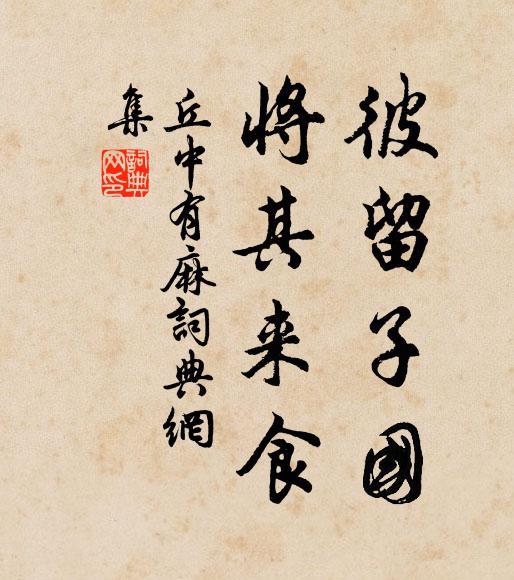 彼留子國
將其来食
丘中有麻詞典網
集
詞典
网印